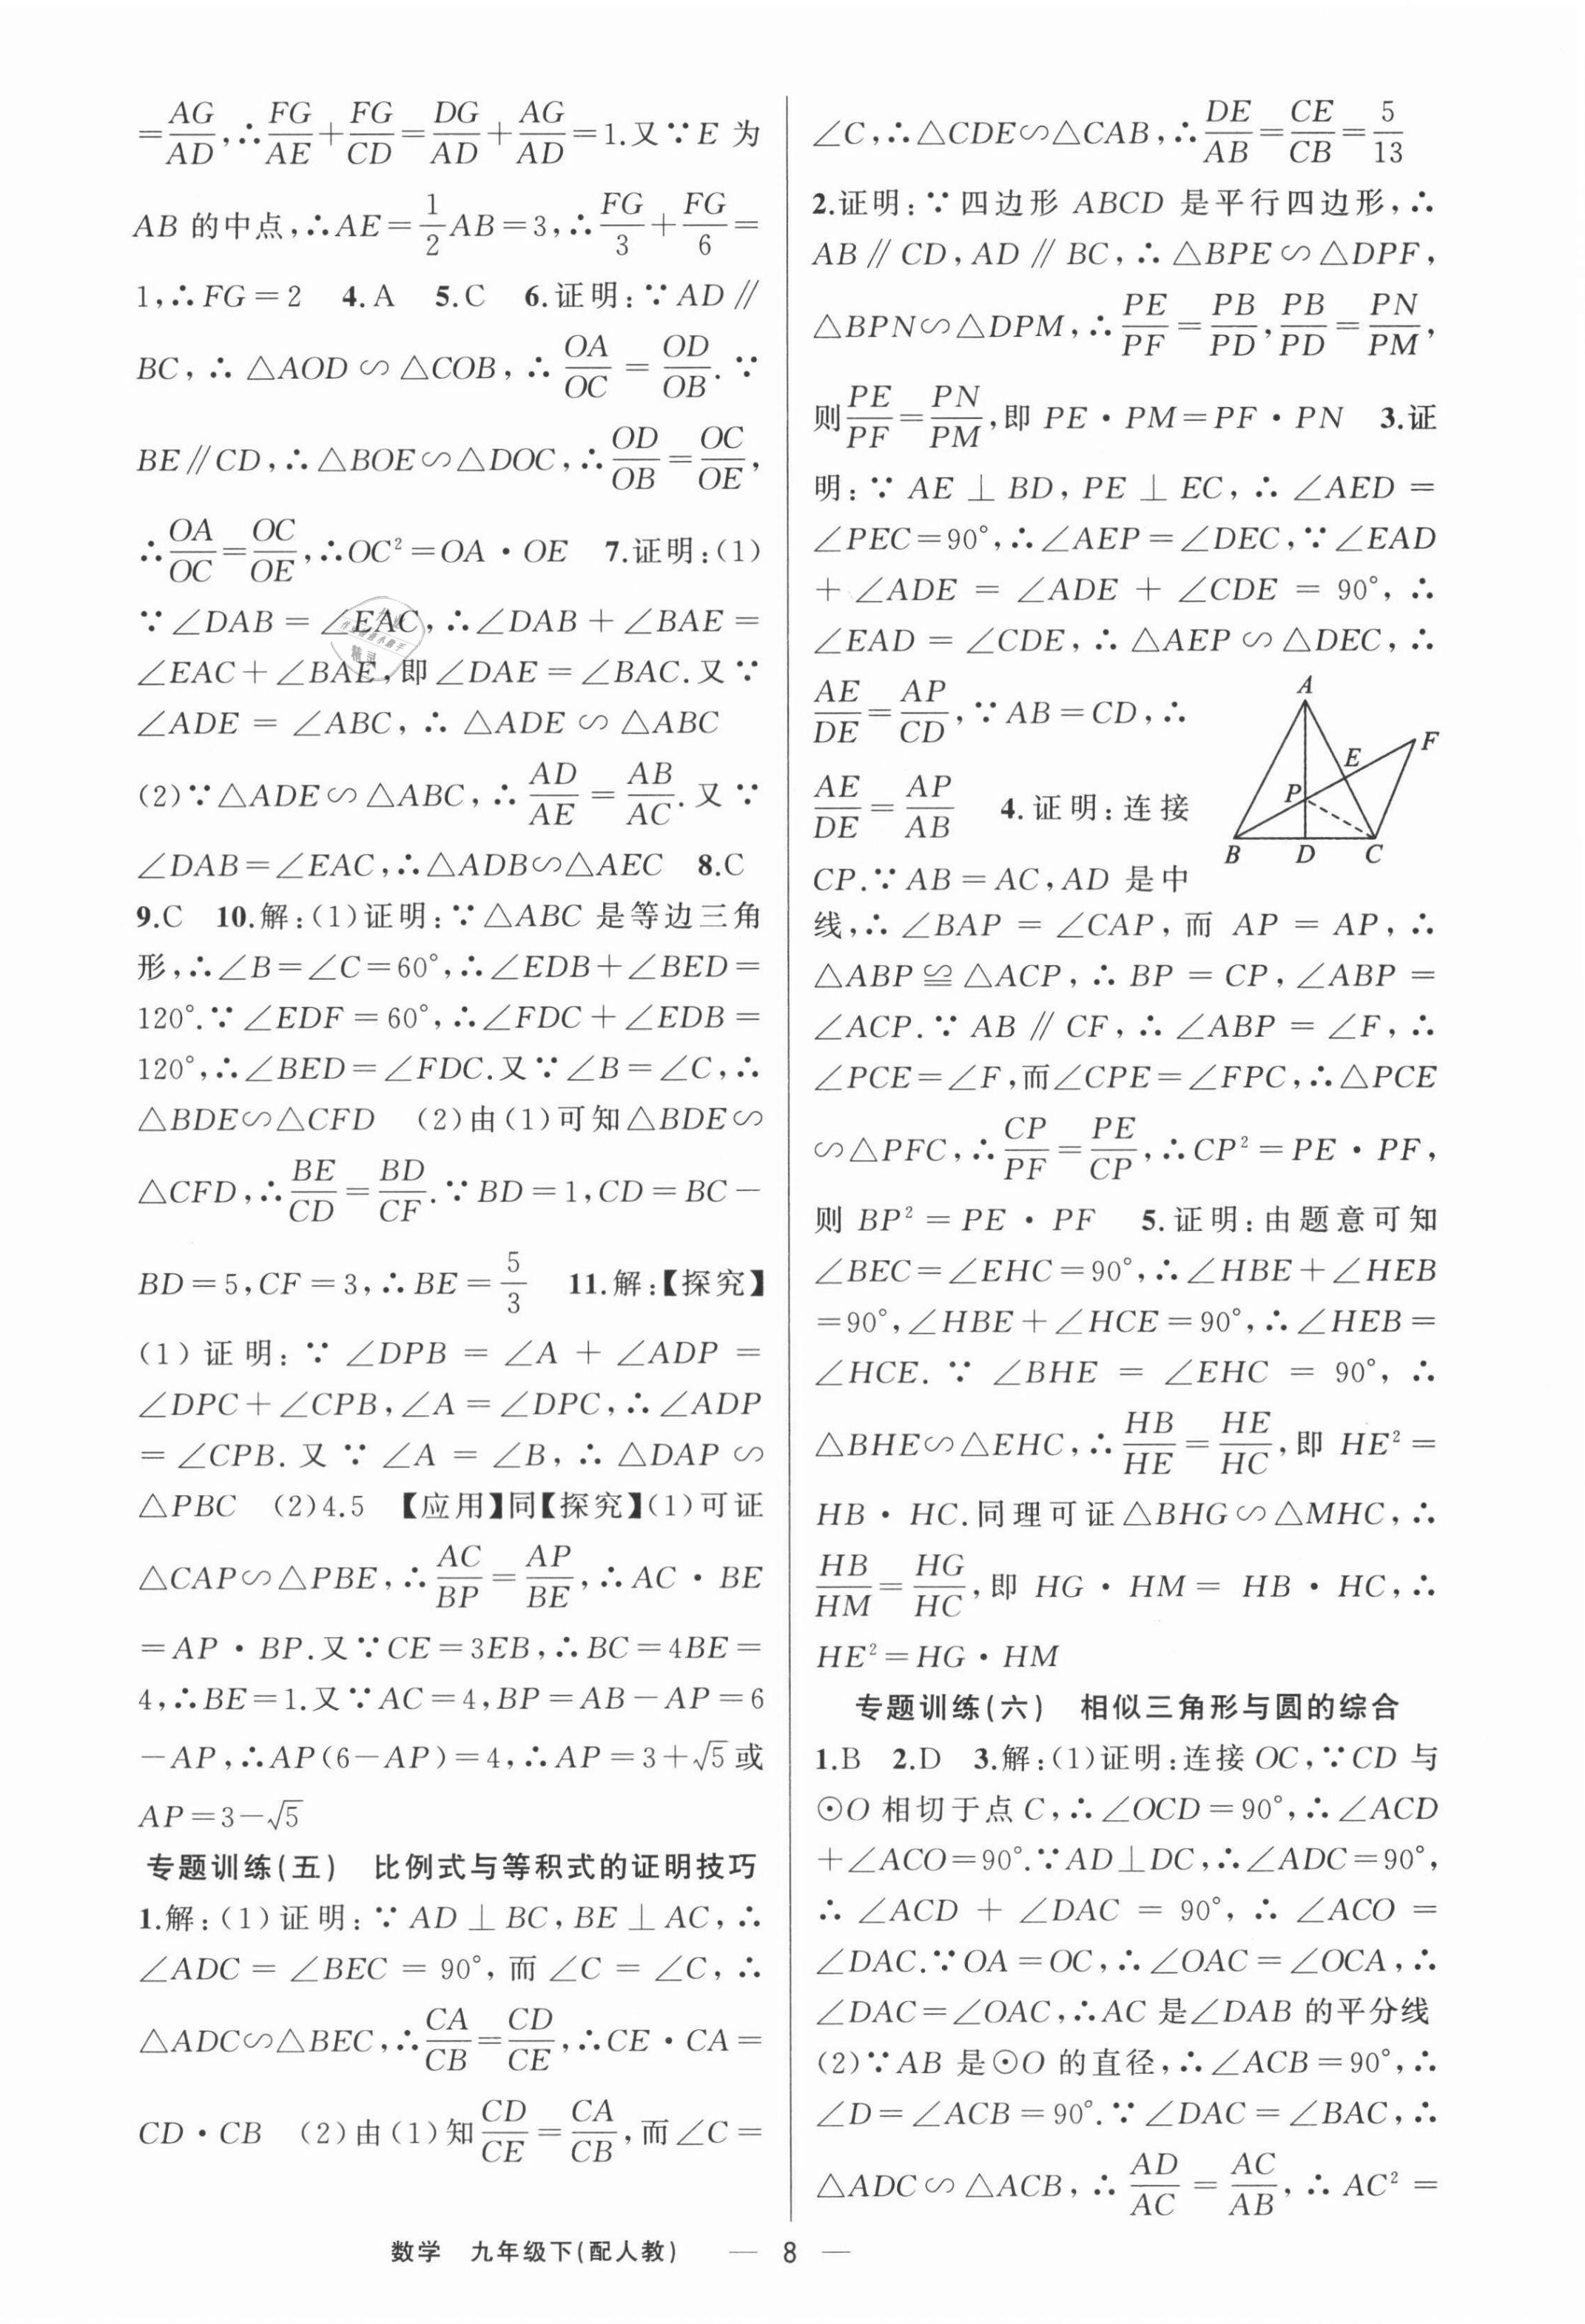 =AG/AD,∴FG/AE+FG/CD=DG/AD+AG/AD=1.又∵E 为
AB 的中点,∴AE=1/2AB=3,∴FG/3+FG/6=
1,∴FG=2 4.A 5.C 6.证明:∵AD∥
BC,∴△AOD∽△COB,∴OA/OC=OD/OB.∵
BE∥CD,∴△BOE∽△DOC,∴OD/OB=OC/OE,
∴OA/OC=OC/OE,∴OC²=OA·OE 7.证明:(1)
∵∠DAB=∠EAC,∴∠DAB+∠BAE=
∠EAC+∠BAE,即∠DAE=∠BAC.又∵
∠ADE=∠ABC,∴△ADE∽△ABC
(2)∵△ADE∽△ABC,∴AD/AE=AB/AC.又∵
∠DAB=∠EAC,∴△ADB∽△AEC 8.C
9.C 10.解:(1)证明:∵△ABC 是等边三角
形,∴∠B=∠C=60°,∴∠EDB+∠BED=
120°.∵∠EDF=60°,∴∠FDC+∠EDB=
120°,∴∠BED=∠FDC.又∵∠B=∠C,∴
△BDE∽△CFD (2)由(1)可知△BDE∽
△CFD,∴BE/CD=BD/CF.∵BD=1,CD=BC-
BD=5,CF=3,∴BE=5/3 11.解:【探究】
(1)证明:∵∠DPB=∠A+∠ADP=
∠DPC+∠CPB,∠A=∠DPC,∴∠ADP
=∠CPB.又∵∠A=∠B,∴△DAP∽
△PBC (2)4.5 【应用】同【探究】(1)可证
△CAP∽△PBE,∴AC/BP=AP/BE,∴AC·BE
=AP·BP.又∵CE=3EB,∴BC=4BE=
4,∴BE=1.又∵AC=4,BP=AB-AP=6
-AP,∴AP(6-AP)=4,∴AP=3+√5或
AP=3-√5
专题训练(五) 比例式与等积式的证明技巧
1.解:(1)证明:∵AD⊥BC,BE⊥AC,∴
∠ADC=∠BEC=90°,而∠C=∠C,∴
△ADC∽△BEC,∴CA/CB=CD/CE,∴CE·CA=
CD·CB (2)由(1)知CD/CE=CA/CB,而∠C=
∠C,∴△CDE∽△CAB,∴DE/AB=CE/CB=5/13
2.证明:∵四边形 ABCD 是平行四边形,∴
AB∥CD,AD∥BC,∴△BPE∽△DPF,
△BPN∽△DPM,∴PE/PF=PB/PD,PB/PD=PN/PM,
则PE/PF=PN/PM,即 PE·PM=PF·PN 3.证
明:∵AE⊥BD,PE⊥EC,∴∠AED=
∠PEC=90°,∴∠AEP=∠DEC,∵∠EAD
+∠ADE=∠ADE+∠CDE=90°,∴
∠EAD=∠CDE,∴△AEP∽△DEC,∴
AE/DE=AP/CD,∵AB=CD,∴
AE/DE=AP/AB 4.证明:连接
CP.∵AB=AC,AD 是中
A
F
E
P
B D C
线,∴∠BAP=∠CAP,而 AP=AP,∴
△ABP≌△ACP,∴BP=CP,∠ABP=
∠ACP.∵AB∥CF,∴∠ABP=∠F,∴
∠PCE=∠F,而∠CPE=∠FPC,∴△PCE
∽△PFC,∴CP/PF=PE/CP,∴CP²=PE·PF,
则 BP²=PE·PF 5.证明:由题意可知
∠BEC=∠EHC=90°,∴∠HBE+∠HEB
=90°,∠HBE+∠HCE=90°,∴∠HEB=
∠HCE.∵∠BHE=∠EHC=90°,∴
△BHE∽△EHC,∴HB/HE=HE/HC,即 HE²=
HB·HC.同理可证△BHG∽△MHC,∴
HB/HM=HG/HC,即 HG·HM=HB·HC,∴
HE²=HG·HM
专题训练(六) 相似三角形与圆的综合
1.B 2.D 3.解:(1)证明:连接 OC,∵CD 与
⊙O 相切于点 C,∴∠OCD=90°,∴∠ACD
+∠ACO=90°.∵AD⊥DC,∴∠ADC=90°,
∴∠ACD+∠DAC=90°,∴∠ACO=
∠DAC.∵OA=OC,∴∠OAC=∠OCA,∴
∠DAC=∠OAC,∴AC 是∠DAB 的平分线
(2)∵AB 是⊙O 的直径,∴∠ACB=90°,∴
∠D=∠ACB=90°.∵∠DAC=∠BAC,∴
△ADC∽△ACB,∴AD/AC=AC/AB,∴AC²=
数学 九年级下(配人教) — 8 —